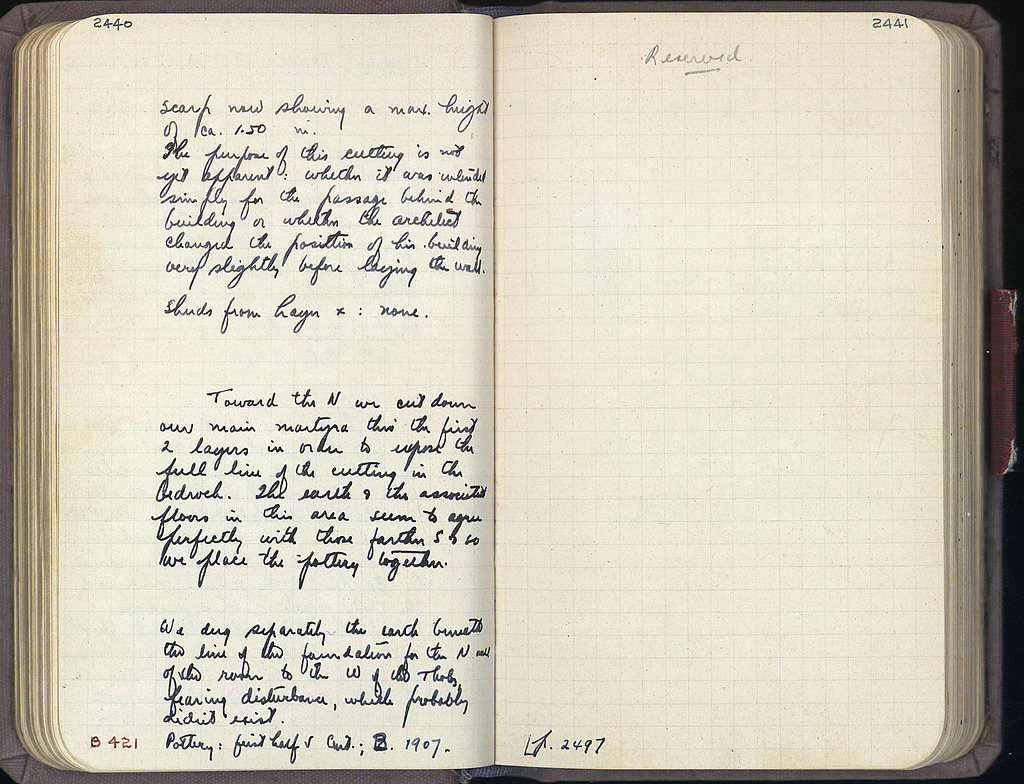 2440
scarp now showing a max. height
of ca. 1.50 m.
The purpose of this cutting is not
yet apparent: whether it was intended
simply for the passage behind the
building or whether the architect
changed the position of his building
very slightly before laying the wall.
Sherds from Layer x : none.
Toward the N we cut down
our main martyra thro the first
2 layers in order to expose the
full line of the cutting in the
bedrock. The earth & the associated
floors in this area seem to agree
perfectly with those farther S & so
we place the pottery together.
We dug separately the earth beneath
the line of the foundation for the N wall
of the room to the W of the Tholos,
fearing disturbance, which probably
didn't exist.
B 421 Pottery: first half V Cent.; B. 1907.
2441
Reserved
p. 2497